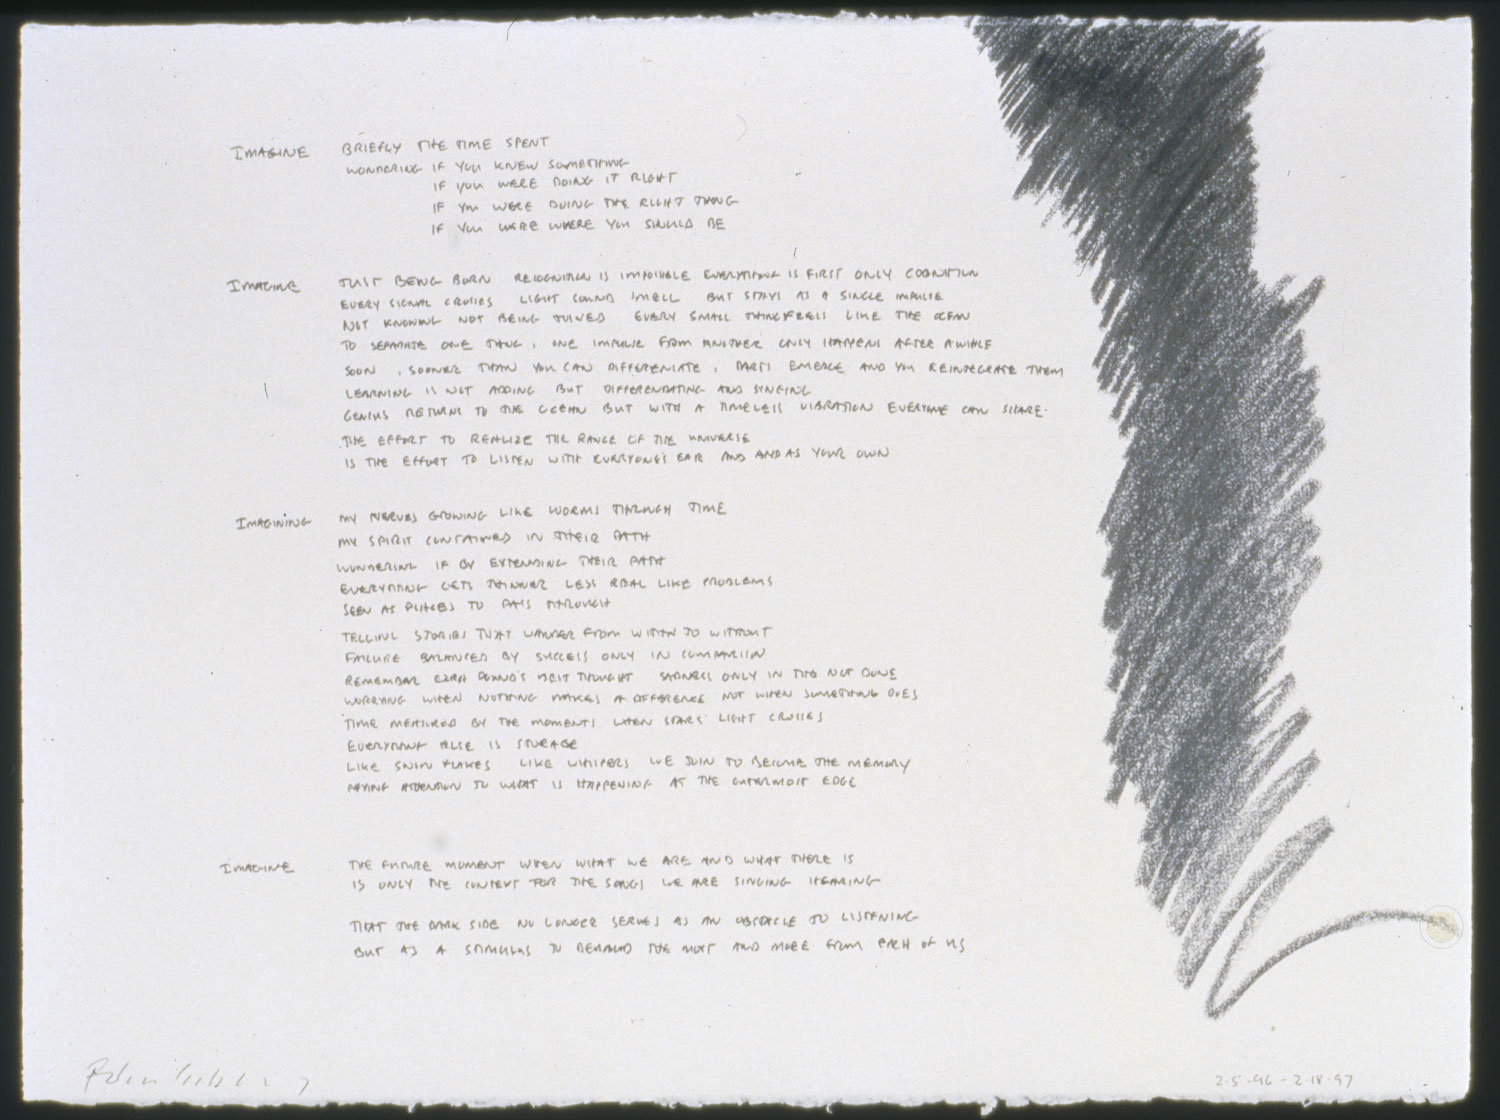 IMAGINE BRIEFLY THE TIME SPENT
WONDERING IF YOU KNEW SOMETHING
IF YOU WERE DOING IT RIGHT
IF YOU WERE DOING THE RIGHT THING
IF YOU WERE WHERE YOU SHOULD BE
IMAGINE JUST BEING BORN RECOGNITION IS IMPOSSIBLE EVERYTHING IS FIRST ONLY COGNITION
EVERY SIGNAL CROSSES LIGHT SOUND SMELL BUT STAYS AS A SINGLE IMPULSE
NOT KNOWING NOT BEING TUNED EVERY SMALL THING FEELS LIKE THE OCEAN
TO SEPARATE ONE THING, ONE IMPULSE FROM ANOTHER ONLY HAPPENS AFTER AWHILE
SOON, SOONER THAN YOU CAN DIFFERENTIATE, PARTS EMERGE AND YOU REINTEGRATE THEM
LEARNING IS NOT ADDING BUT DIFFERENTIATING AND SYNCING
GENIUS RETURNS TO THE OCEAN BUT WITH A TIMELESS VIBRATION EVERYONE CAN SHARE.
THE EFFORT TO REALIZE THE RANGE OF THE UNIVERSE
IS THE EFFORT TO LISTEN WITH EVERYONE'S EAR AND AND AS YOUR OWN
IMAGINING MY NERVES GROWING LIKE WORMS THROUGH TIME
MY SPIRIT CONTAINED IN THEIR PATH
WONDERING IF BY EXTENDING THEIR PATH
EVERYTHING GETS THINNER LESS REAL LIKE PROBLEMS
SEEN AS PLACES TO PASS THROUGH
TELLING STORIES THAT WANDER FROM WITHIN TO WITHOUT
FAILURE BALANCED BY SUCCESS ONLY IN COMPARISON
REMEMBER EZRA POUND'S BEST THOUGHT SADNESS ONLY IN THE NOT DONE
WORRYING WHEN NOTHING MAKES A DIFFERENCE NOT WHEN SOMETHING DOES
TIME MEASURED BY THE MOMENTS WHEN STARS' LIGHT CROSSES
EVERYTHING ELSE IS STORAGE
LIKE SNOW FLAKES LIKE WHISPERS WE JOIN TO BECOME THE MEMORY
PAYING ATTENTION TO WHAT IS HAPPENING AT THE OUTERMOST EDGE
IMAGINE THE FUTURE MOMENT WHEN WHAT WE ARE AND WHAT THERE IS
IS ONLY THE CONTEXT FOR THE SONGS WE ARE SINGING HEARING
THAT THE DARK SIDE NO LONGER SERVES AS AN OBSTACLE TO LISTENING
BUT AS A STIMULUS TO DEMAND THE MOST AND MORE FROM EACH OF US
2·5·96 - 2·18·97